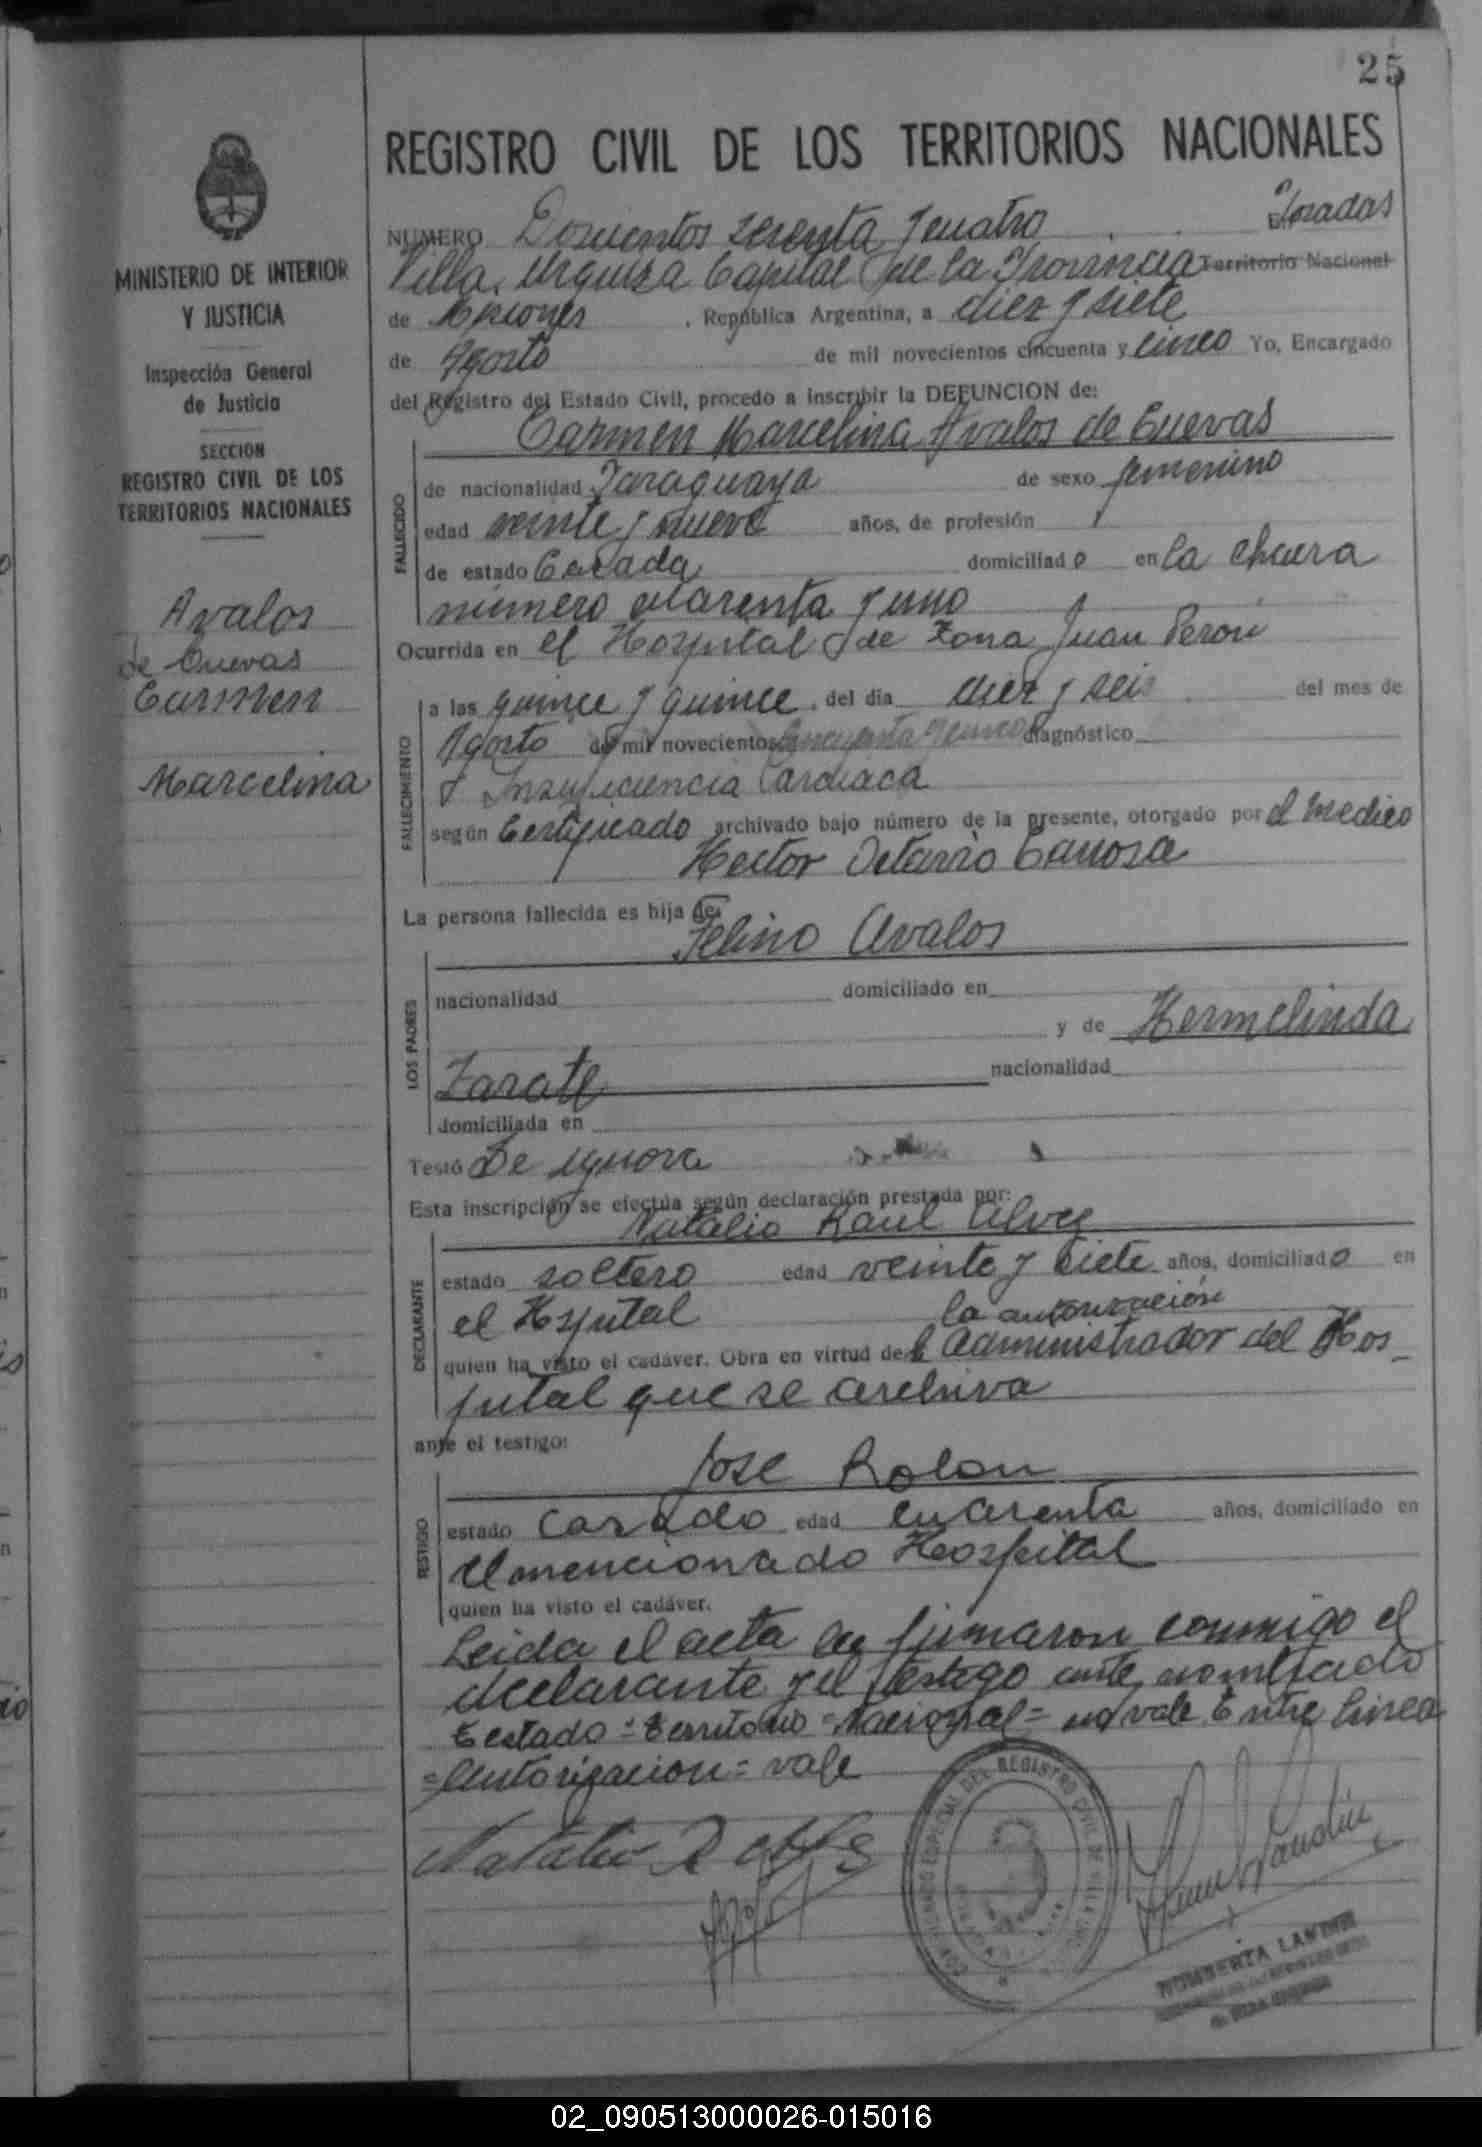 25
REGISTRO CIVIL DE LOS TERRITORIOS NACIONALES
MINISTERIO DE INTERIOR
Y JUSTICIA
Inspección General
de Justicia
SECCION
REGISTRO CIVIL DE LOS
TERRITORIOS NACIONALES
Avalos
de Cuevas
Carmen
Marcelina
NUMERO Doscientos sesenta y cuatro En Posadas
Villa Urquiza Capital de la Provincia Territorio Nacional
de Misiones , República Argentina, a diez y siete
de Agosto de mil novecientos cincuenta y cinco Yo, Encargado
del Registro del Estado Civil, procedo a inscribir la DEFUNCION de:
Carmen Marcelina Avalos de Cuevas
FALLECIDO
de nacionalidad Paraguaya de sexo femenino
edad veinte y nueve años, de profesión
de estado Casada domiciliado en la chacra
número cuarenta y uno
Ocurrida en el Hospital de Zona Juan Perón
FALLECIMIENTO
a las quince y quince , del día diez y seis del mes de
Agosto de mil novecientos cincuenta y cinco diagnóstico
Insuficiencia Cardiaca
según Certificado archivado bajo número de la presente, otorgado por el medico
Hector Octavio Canosa
La persona fallecida es hija de:
Felino Avalos
LOS PADRES
nacionalidad domiciliado en
y de Hermelinda
Zarate nacionalidad
domiciliada en
Testó Se ignora
Esta inscripción se efectúa según declaración prestada por:
Natalio Raul Alvez
DECLARANTE
estado soltero edad veinte y siete años, domiciliado en
el Hospital la autorización
quien ha visto el cadáver. Obra en virtud de el Administrador del Hos_
pital que se archiva
ante el testigo:
Jose Rolon
TESTIGO
estado Casado edad cuarenta años, domiciliado en
el mencionado Hospital
quien ha visto el cadáver.
Leida el acta la firmaron conmigo el
declarante y el testigo ante nombrado
Testado = territorio = Nacional = no vale Entre linea
= Autorizacion = vale
Natalio R Alvez
DEL REGISTRO CIVIL DE VILLA
02_090513000026-015016